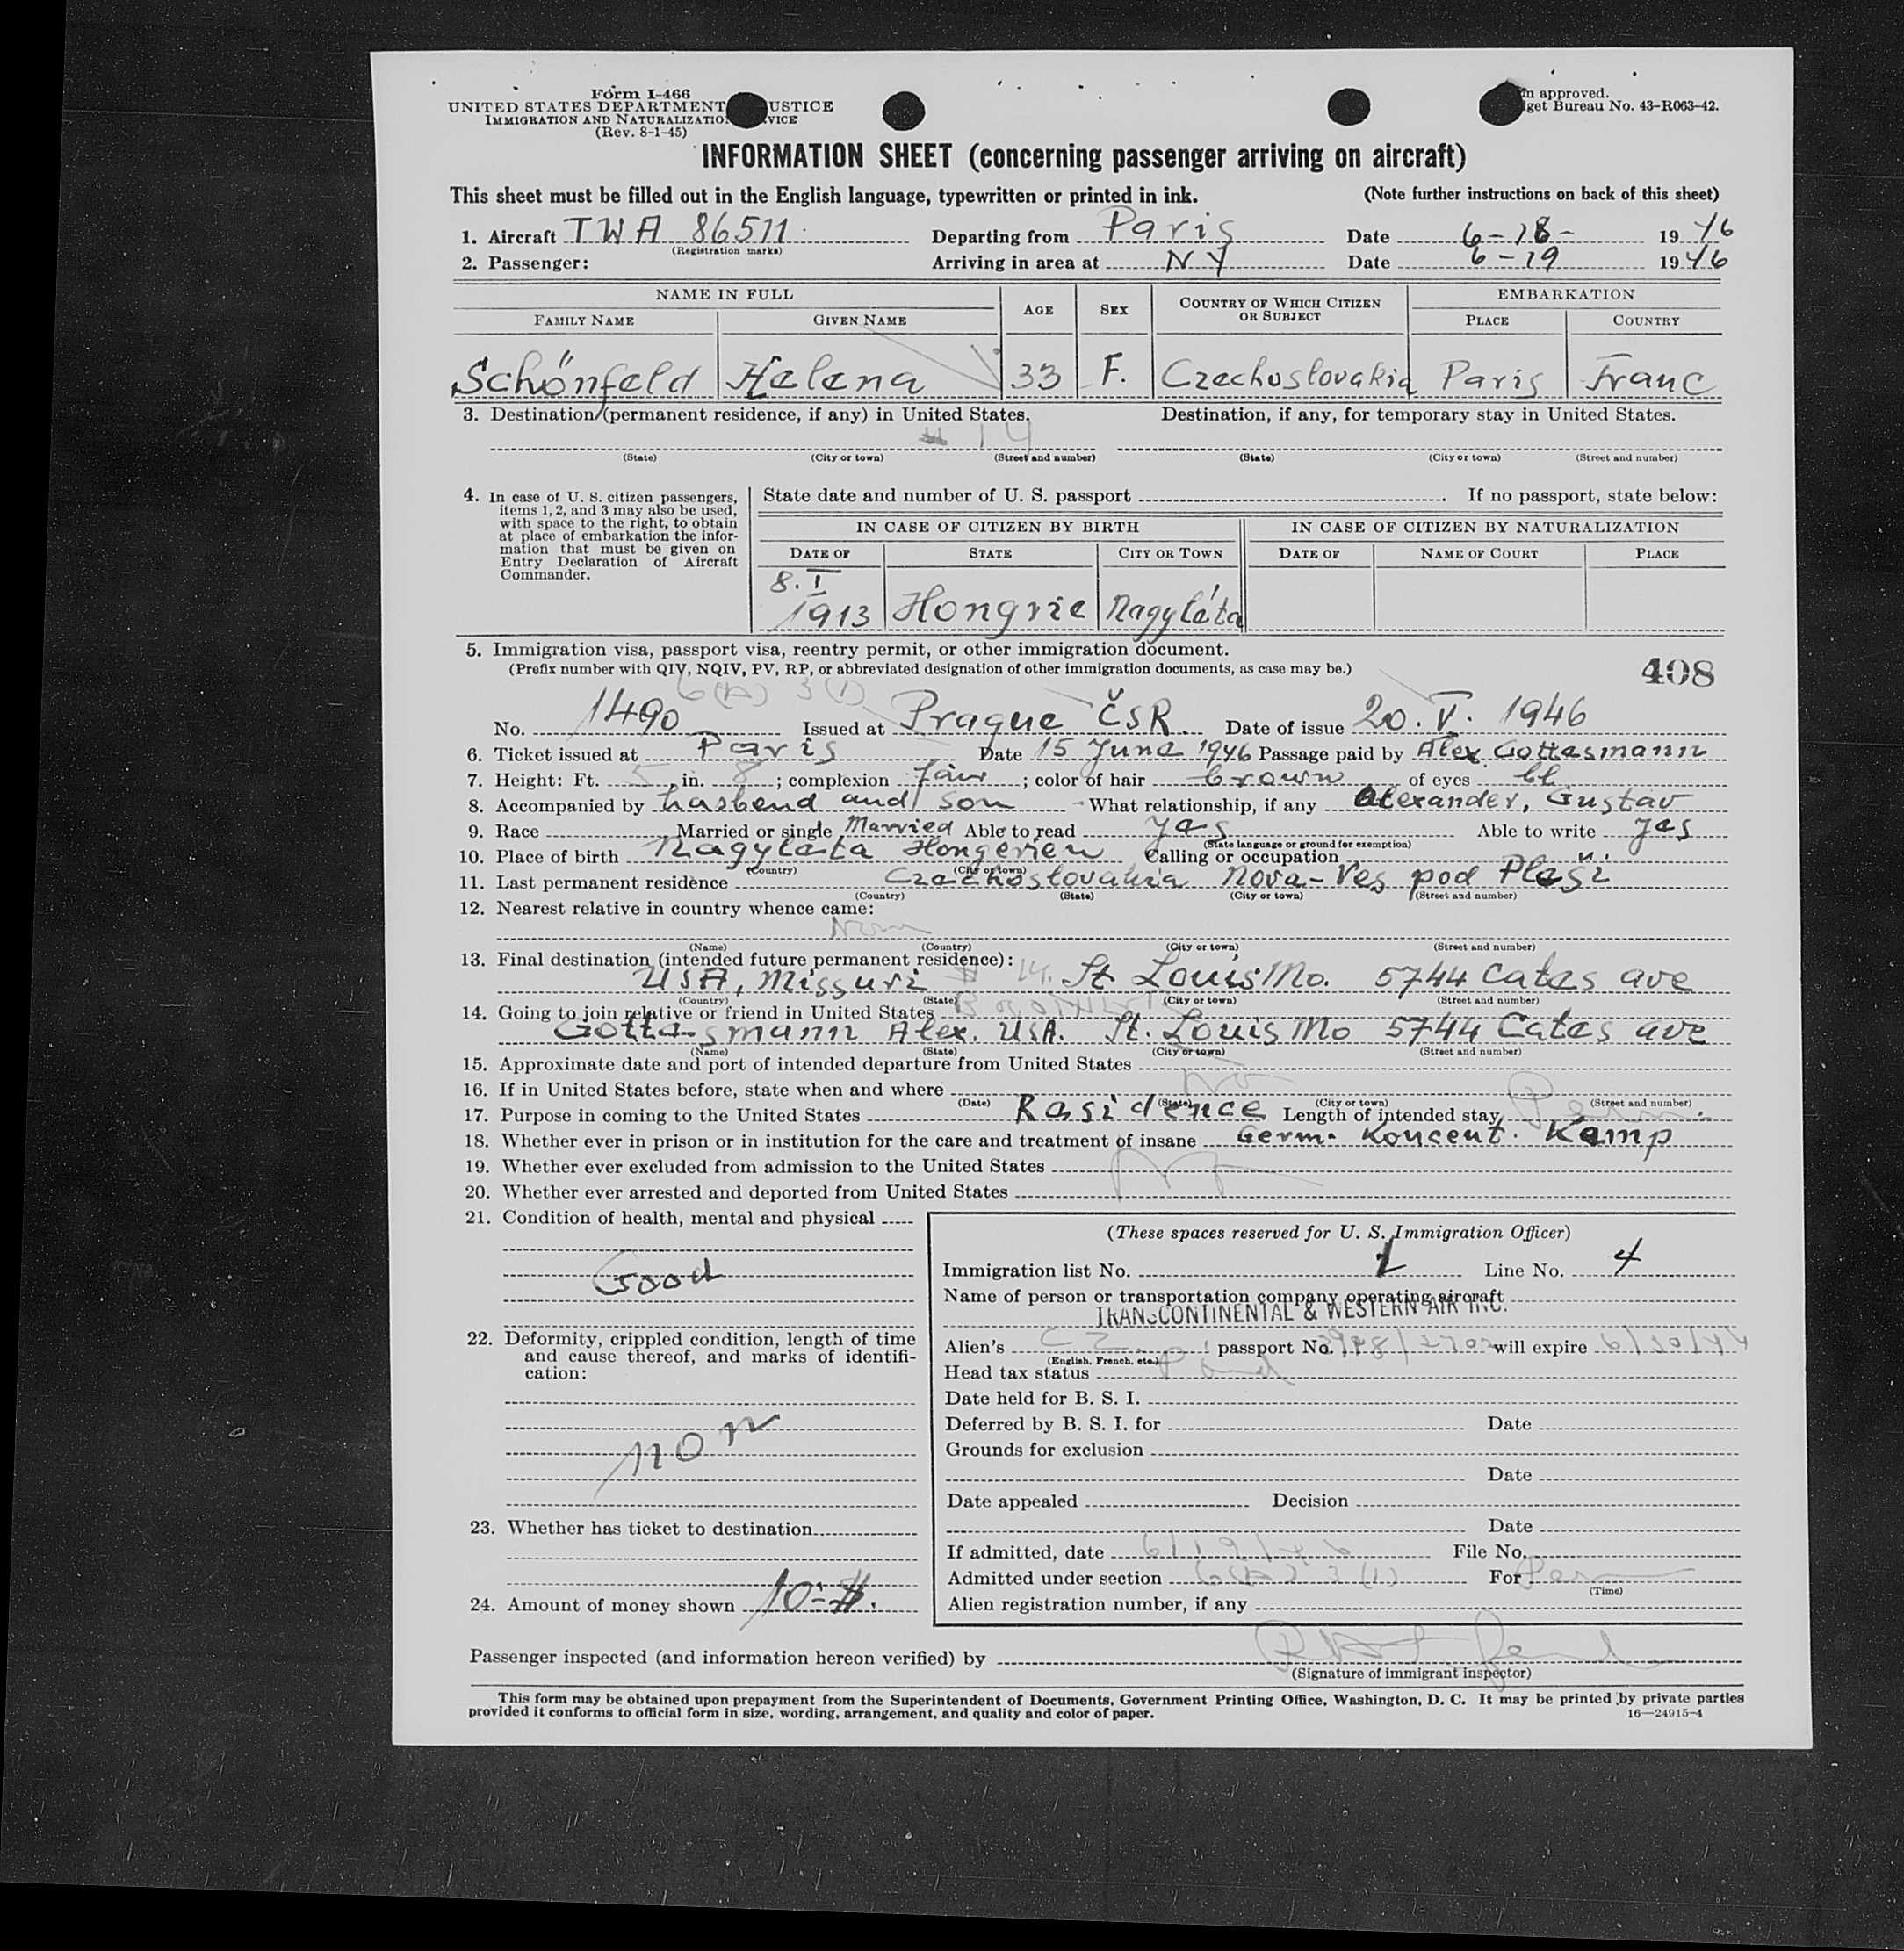 Form I-466
UNITED STATES DEPARTMENT USTICE
IMMIGRATION AND NATURALIZATIO VICE
(Rev. 8-1-45)
n approved.
get Bureau No. 43-R063-42.
INFORMATION SHEET (concerning passenger arriving on aircraft)
This sheet must be filled out in the English language, typewritten or printed in ink. (Note further instructions on back of this sheet)
1. Aircraft TWA 86511 Departing from Paris Date 6-18- 1946
(Registration marks)
2. Passenger: Arriving in area at NY Date 6-19 1946
NAME IN FULL AGE SEX COUNTRY OF WHICH CITIZEN OR SUBJECT EMBARKATION
FAMILY NAME GIVEN NAME PLACE COUNTRY
Schönfeld Helena 33 F. Czechoslovakia Paris Franc
3. Destination (permanent residence, if any) in United States. Destination, if any, for temporary stay in United States.
14
(State) (City or town) (Street and number) (State) (City or town) (Street and number)
4. In case of U. S. citizen passengers, items 1, 2, and 3 may also be used, with space to the right, to obtain at place of embarkation the information that must be given on Entry Declaration of Aircraft Commander.
State date and number of U. S. passport . If no passport, state below:
IN CASE OF CITIZEN BY BIRTH IN CASE OF CITIZEN BY NATURALIZATION
DATE OF STATE CITY OR TOWN DATE OF NAME OF COURT PLACE
8. I
1913 Hongrie Nagyléta
5. Immigration visa, passport visa, reentry permit, or other immigration document.
(Prefix number with QIV, NQIV, PV, RP, or abbreviated designation of other immigration documents, as case may be.)
408
No. 1490 Issued at Prague ČSR. Date of issue 20. V. 1946
6. Ticket issued at Paris Date 15 June 1946 Passage paid by Alex Gottesmann
7. Height: Ft. 5, in. 8; complexion fair; color of hair brown of eyes bl
8. Accompanied by hasbend and son What relationship, if any Alexander, Gustav
9. Race Married or single Married Able to read yes Able to write yes
(State language or ground for exemption)
10. Place of birth Nagyleta Hongerien Calling or occupation
(Country) (City or town)
11. Last permanent residence Czechoslovakia Nova-Ves pod Pleši
(Country) (State) (City or town) (Street and number)
12. Nearest relative in country whence came:
(Name) (Country) (City or town) (Street and number)
13. Final destination (intended future permanent residence):
USA, Missuri St Louis Mo. 5744 Cates ave
(Country) (State) (City or town) (Street and number)
14. Going to join relative or friend in United States
Gottesmann Alex. USA. St. Louis Mo 5744 Cates ave
(Name) (State) (City or town) (Street and number)
15. Approximate date and port of intended departure from United States
16. If in United States before, state when and where No
(Date) (State) (City or town) (Street and number)
17. Purpose in coming to the United States Residence Length of intended stay Perm.
18. Whether ever in prison or in institution for the care and treatment of insane Germ. Koncent. Kamp
19. Whether ever excluded from admission to the United States No
20. Whether ever arrested and deported from United States
21. Condition of health, mental and physical
Good
22. Deformity, crippled condition, length of time and cause thereof, and marks of identification:
non
23. Whether has ticket to destination
24. Amount of money shown 10-$.
(These spaces reserved for U. S. Immigration Officer)
Immigration list No. 1 Line No. 4
Name of person or transportation company operating aircraft
TRANSCONTINENTAL & WESTERN AIR INC.
Alien's passport No. will expire
(English, French, etc.)
Head tax status
Date held for B. S. I.
Deferred by B. S. I. for Date
Grounds for exclusion
Date
Date appealed Decision
Date
If admitted, date 6/19/46 File No.
Admitted under section For Perm
(Time)
Alien registration number, if any
Passenger inspected (and information hereon verified) by
(Signature of immigrant inspector)
This form may be obtained upon prepayment from the Superintendent of Documents, Government Printing Office, Washington, D. C. It may be printed by private parties
provided it conforms to official form in size, wording, arrangement, and quality and color of paper. 16—24915-4